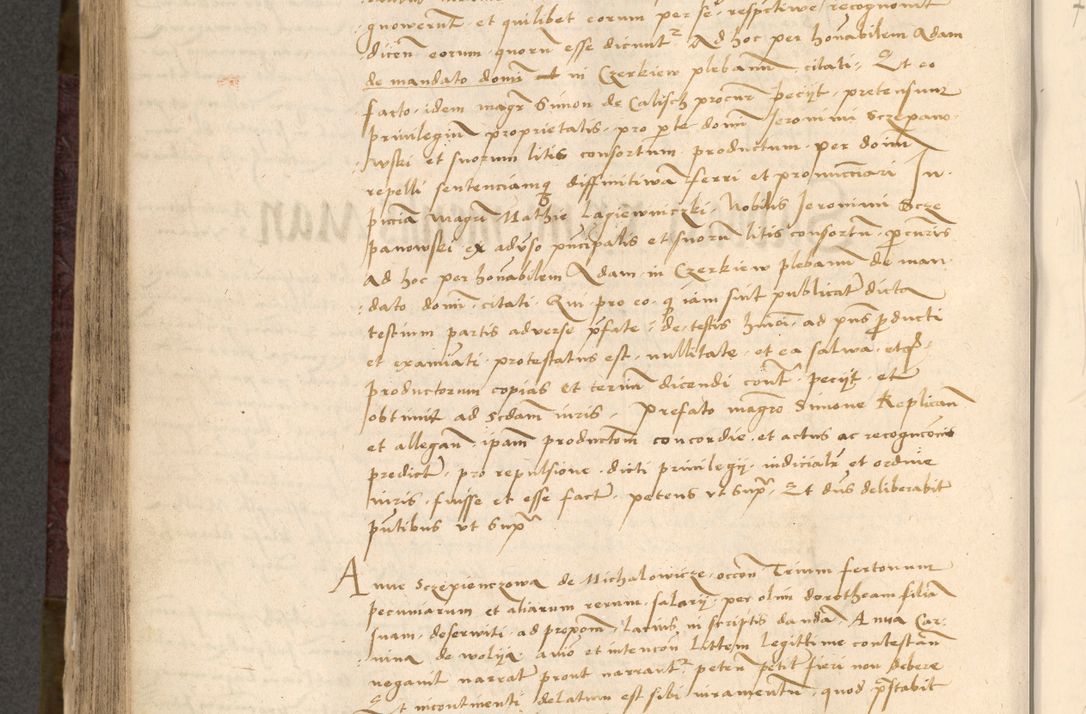 gnowerunt et quilibet eorum per se respective recognovit
dicen eorum quoru esse dicunt Ad hoc per honabilem Adam
de mandato domi in Czerkiew plebanu citati Et eo
facto idem magr Simon de Calisch procur peciit pretensum
privilegium proprietatis pro parte domi Ieronimi Sczepano
wski et suorum litis consortum productum per dominu
repelli sentenciamq diffinitiwam ferri et pronucciari In
pncia Magri Mathie Lagiewniczki Nobilis Ieronimi Scze
panowski ex adverso pncipalis et suoru litis consortu procuris
Ad hoc per honabilem Adam in Czerkiew plebanu de man
dato domi citati Qui pro eo q iam sint publicat dicta
testium partis adverse pfate de testis hmoi ad pns producti
et examiati protestatus est nullitate et ea salwa etq
productorum copias et termi dicendi cont peciit et
obtinuit ad scdam iuris Prefato magro Simone Replican
et allegan ipam productom concordie et actus ac recogncois
predict pro repulsione dicti privilegii iudicialr et ordine
iuris fuisse et esse fact petens ut supra Et dns deliberabit
pntibus ut supra
Anne Sczepienczowa de Michalowicze occon Trium fertonum
pecuniarum et aliarum rerum salarii per olim dorotheam filia
suam deserviti ad prepom latius in scriptis danda Anna Car
nina de wolya anio et intencon Littem legittime contestan
negavit narrat prout narrant peten petit fieri non debere
Et incontinenti delatum est sibi iuramentu quod prstabit